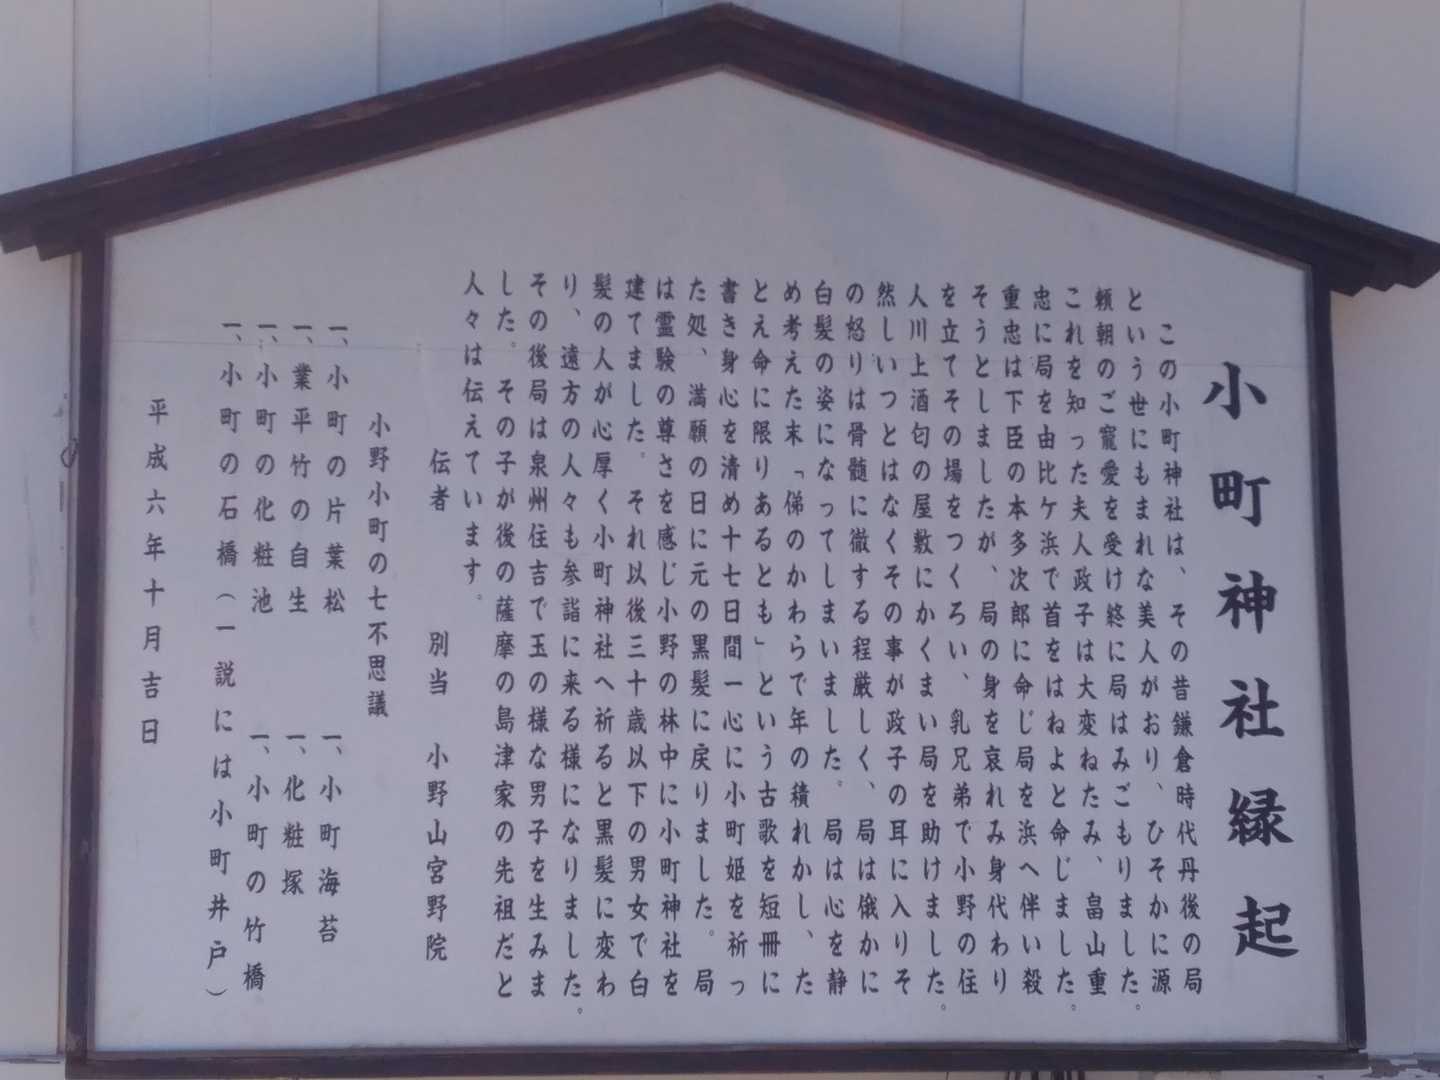 小町神社縁起
この小町神社は、その昔鎌倉時代丹後の局
という世にもまれな美人がおり、ひそかに源
頼朝のご寵愛を受け終に局はみごもりました。
これを知った夫人政子は大変ねたみ、畠山重
忠に局を由比ケ浜で首をはねよと命じました。
重忠は下臣の本多次郎に命じ局を浜へ伴い殺
そうとしましたが、局の身を哀れみ身代わり
を立てその場をつくろい、乳兄弟で小野の住
人川上酒匂の屋敷にかくまい局を助けました。
然しいつとはなくその事が政子の耳に入りそ
の怒りは骨髄に徹する程厳しく、局は俄かに
白髪の姿になってしまいました。局は心を静
め考えた末「俤のかわらで年の積れかし、た
とえ命に限りあるとも」という古歌を短冊に
書き身心を清め十七日間一心に小町姫を祈っ
た処、満願の日に元の黒髪に戻りました。局
は霊験の尊さを感じ小野の林中に小町神社を
建てました。それ以後三十歳以下の男女で白
髪の人が心厚く小町神社へ祈ると黒髪に変わ
り、遠方の人々も参詣に来る様になりました。
その後局は泉州住吉で玉の様な男子を生みま
した。その子が後の薩摩の島津家の先祖だと
人々は伝えています。
伝者　別当　小野山宮野院
小野小町の七不思議
一、小町の片葉松　一、小町海苔
一、業平竹の自生　一、化粧塚
一、小町の化粧池　一、小町の竹橋
一、小町の石橋（一説には小町井戸）
平成六年十月吉日